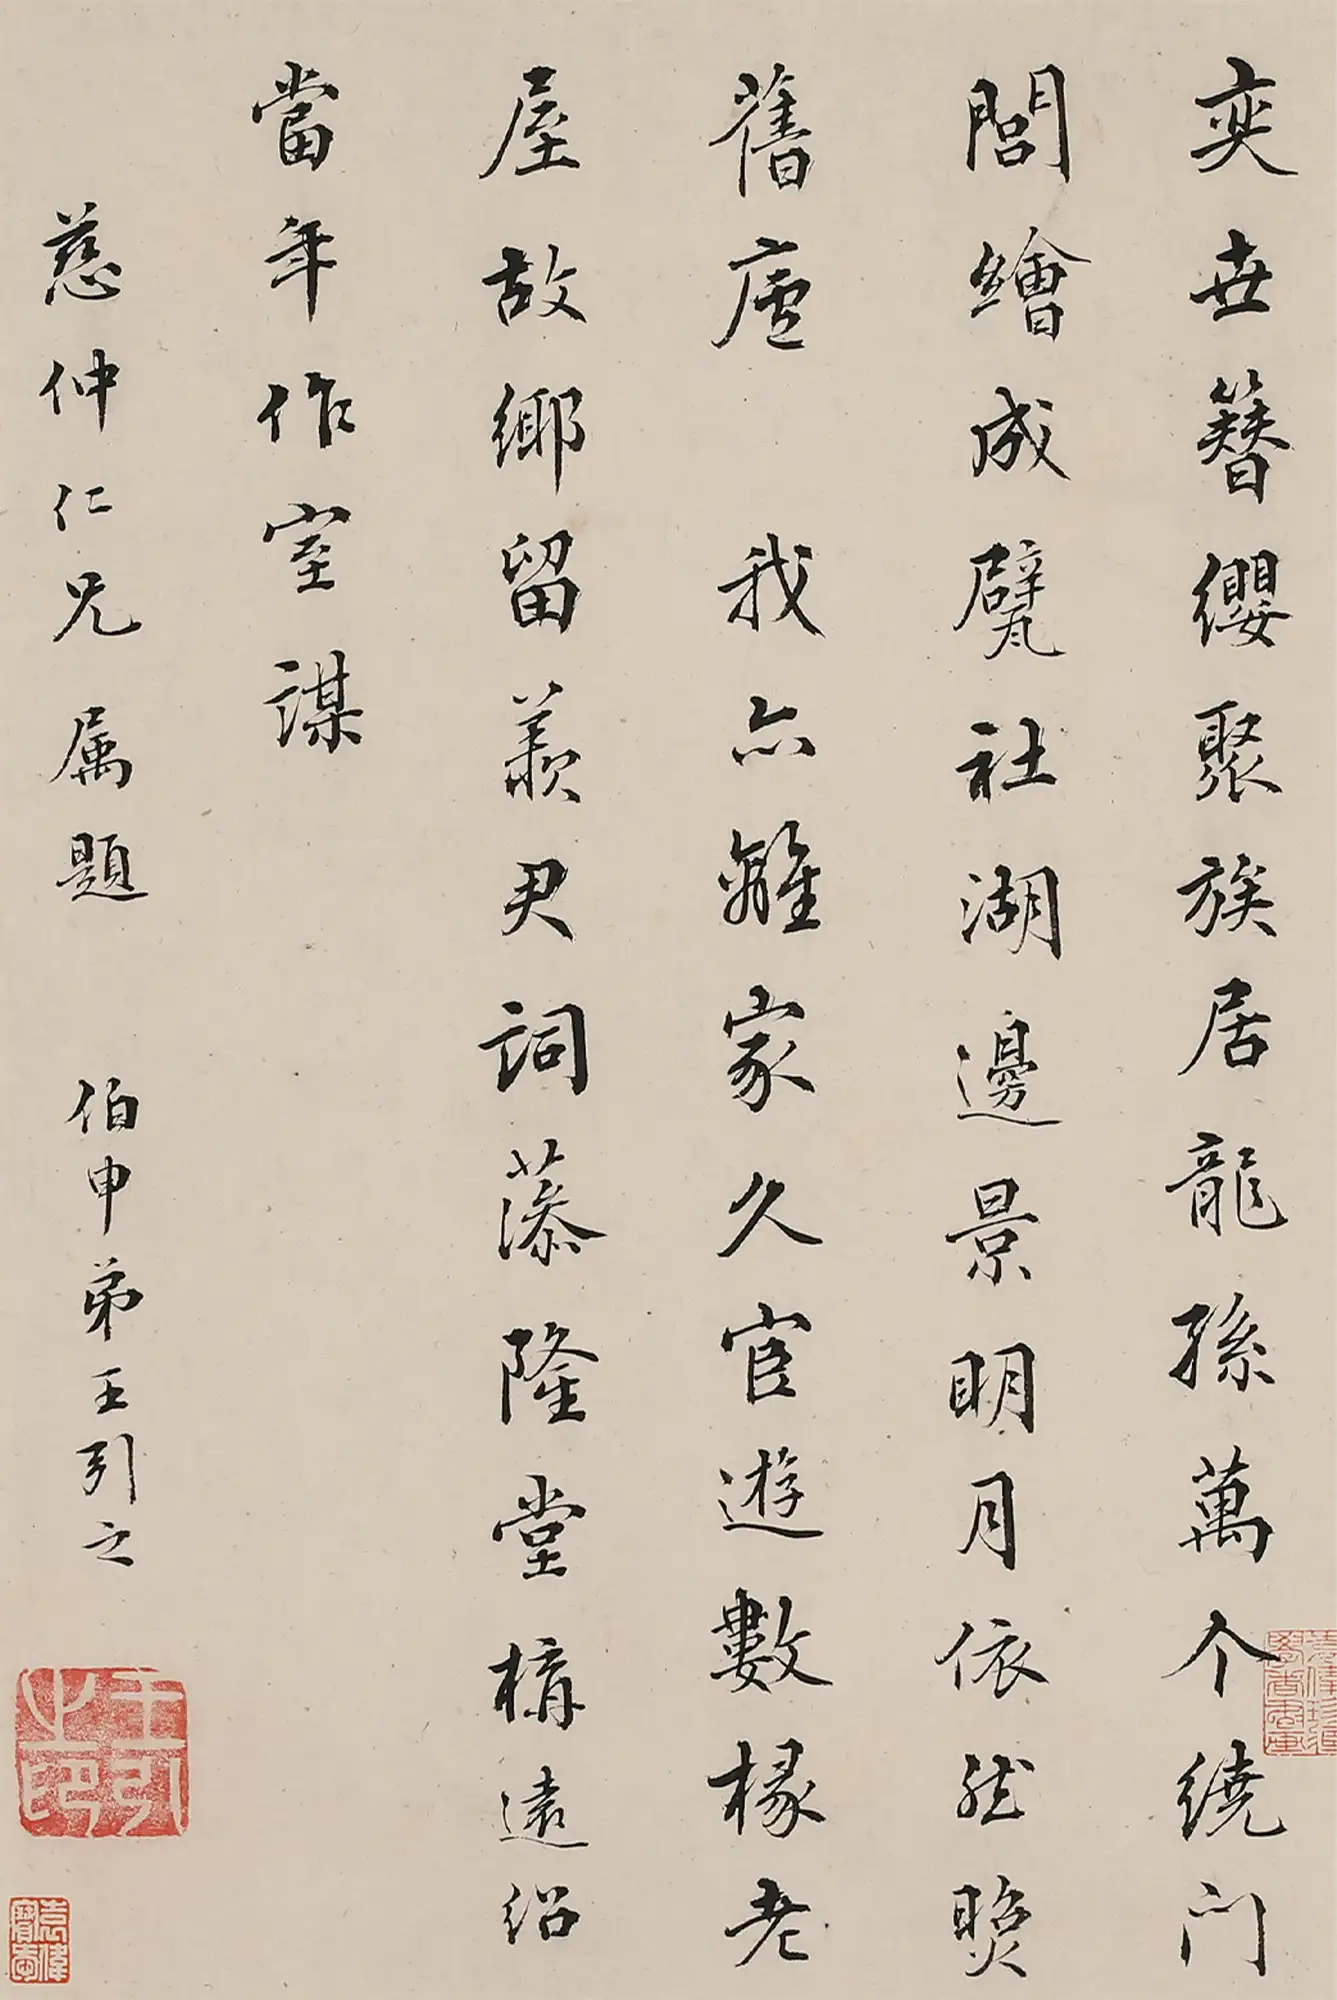 奕世簪纓聚族居龍孫萬个繞門
閭繪成甓社湖邊景明月依然照
舊廬 我亦離家久宦遊數椽老
屋故鄉留羨君詞藻隆堂構遠紹
當年作室謀
慈仲仁兄属題 伯申弟王引之
王引之印